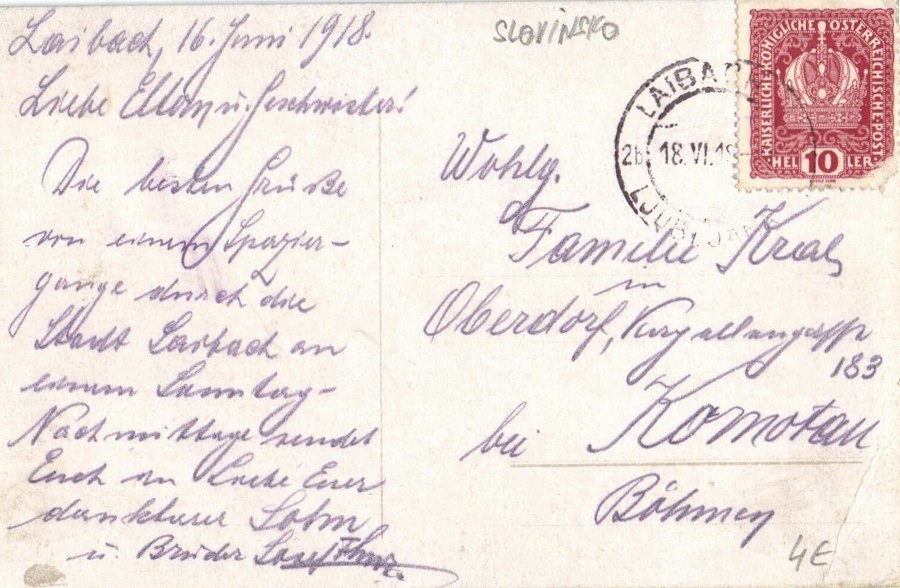 Laibach, 16. Juni 1918.
Liebe Eltern u. Geschwister!
Die besten Grüße
von einem Spazier-
gange durch die
Stadt Laibach an
einem Sonntag-
Nachmittage sendet
Euch in Liebe Euer
dankbarer Sohn
u. Bruder Josef
SLOVINSKO
LAIBACH
2b 18.VI.18
LJUBLJANA
KAISERLICHE KÖNIGLICHE ÖSTERREICHISCHE POST
HEL 10 LER
Wohlg.
Familie Kral
in
Oberdorf,
183
bei Komotau
Böhmen
4E